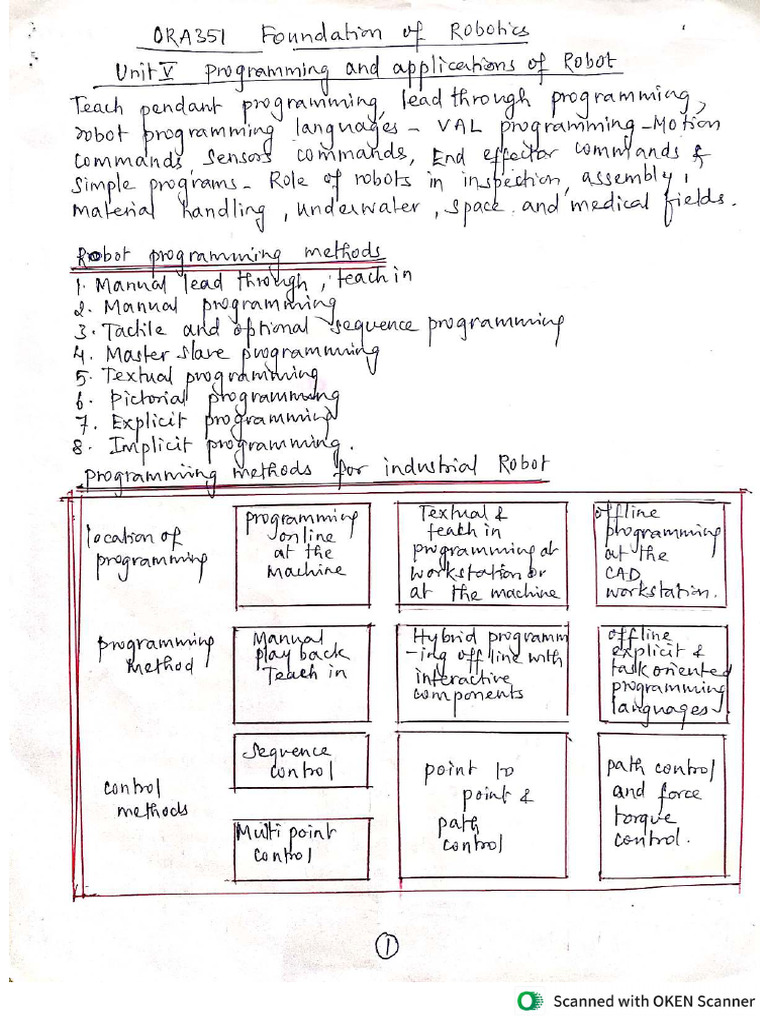 ORA351 Foundation of Robotics
Unit V Programming and applications of Robot
Teach pendant programming, lead through programming,
robot programming languages - VAL programming - Motion
commands, sensors commands, End effector commands &
simple programs - Role of robots in inspection, assembly,
material handling, underwater, space and medical fields.
Robot programming methods
1. Manual lead through, teach in
2. Manual programming
3. Tactile and optional sequence programming
4. Master slave programming
5. Textual programming
6. Pictorial programming
7. Explicit programming
8. Implicit programming.
programming methods for industrial Robot
location of
programming
programming
online
at the
Machine
Textual &
teach in
programming at
workstation or
at the machine
offline
programming
at the
CAD
workstation.
programming
Method
Manual
play back
Teach in
Hybrid programm
-ing off line with
interactive
components
offline
explicit &
task oriented
programming
languages
control
methods
Sequence
control
Multi point
control
point to
point &
path
control
path control
and force
torque
control.
1
Scanned with OKEN Scanner